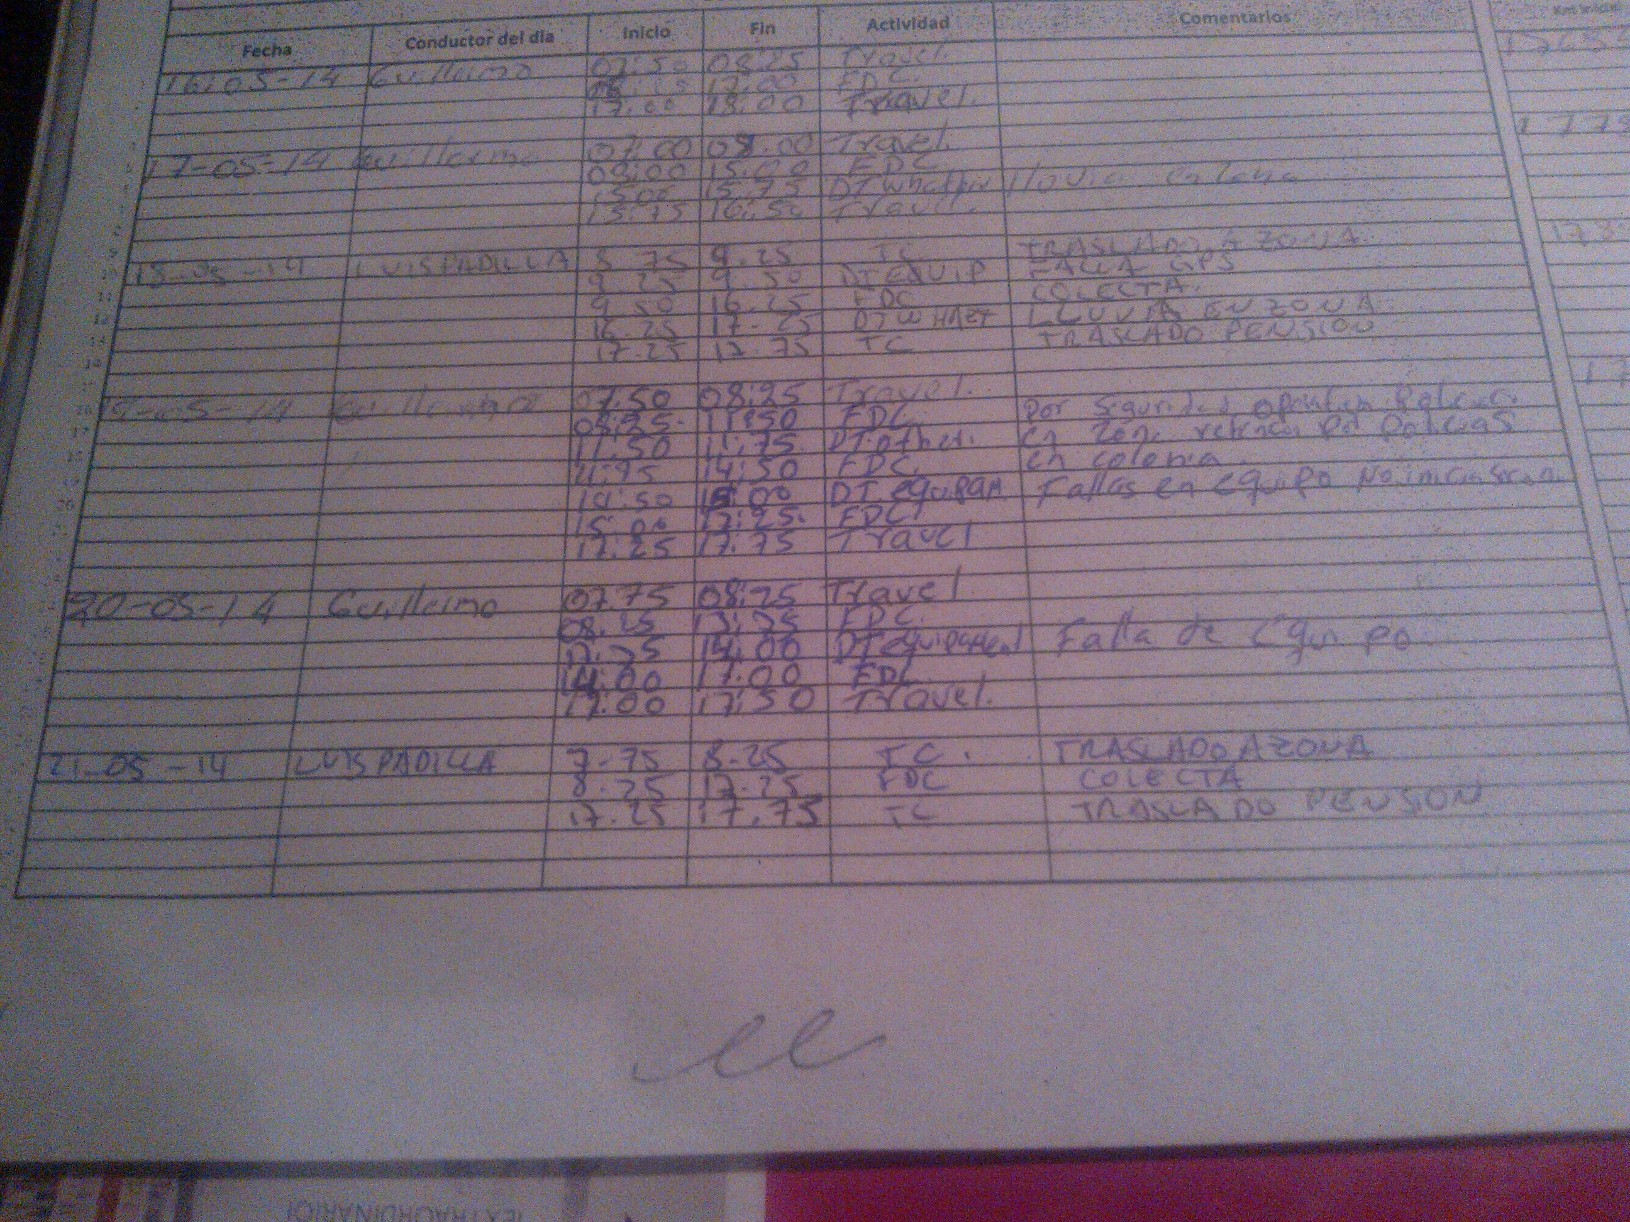 Fecha Conductor del dia Inicio Fin Actividad Comentarios Km Inicial
16-05-14 Guillermo 07:50 08:25 Travel.
17:00 FDC.
17:00 18:00 Travel.
17-05-14 Guillermo 07:00 08:00 Travel.
08:00 15:00 FDC
1500 15:75 DT Whather lluvia en zona
15:75 16:50 Travel.
18-05-14 LUIS PADILLA 8.75 9.25 TC TRASLADO A ZONA
9.25 9.50 DT EQUIP FALLA GPS
9.50 16.25 FDC COLECTA.
16.25 17.25 DT WHAET LLUVIA EN ZONA
17.25 17.75 TC TRASLADO PENSION
-05-14 07.50 08:25 Travel.
08:25. 11:50 FDC. por seguridad
11.50 11:75 DT other. en zona policias
11:75 14:50 FDC. en colonia.
14:50 15:00 DT Fallas en equipo
15:00 17:25. FDC.
17:25 17.75 Travel
20-05-14 Guillermo 07.75 08:25 Travel
08.25 13:75 FDC.
14:00 Falla de Equipo
14:00 17:00 FDC.
17:00 17:50 Travel.
21-05-14 LUIS PADILLA 7.75 8.25 TC. TRASLADO A ZONA
8.25 17.25 FDC COLECTA
17.25 17.75 TC TRASLADO PENSION
(EXTRAORDINARIO)